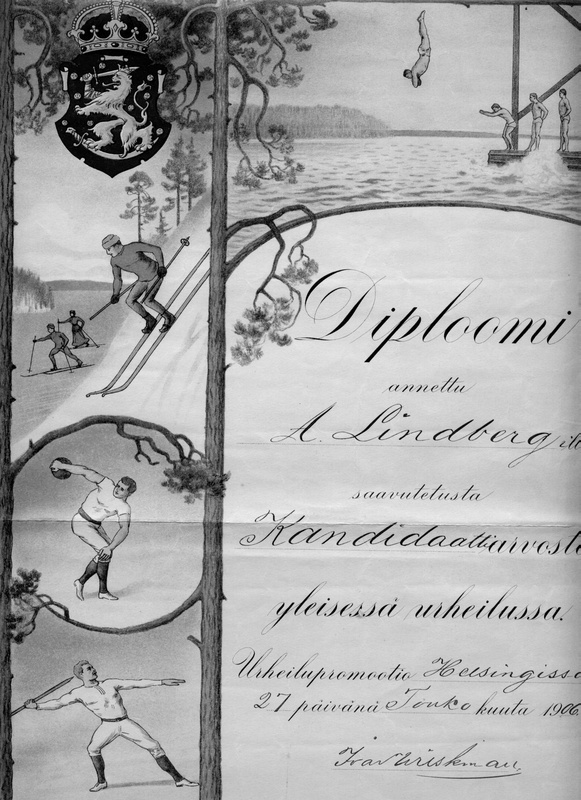 Diploomi
annettu
A. Lindberg
saavutetusta
Kandidaattiarvosta
yleisessä urheilussa.
Urheilupromootio Helsingissä
27 päivänä Touko kuuta 1906.
Ivar Wriskman.